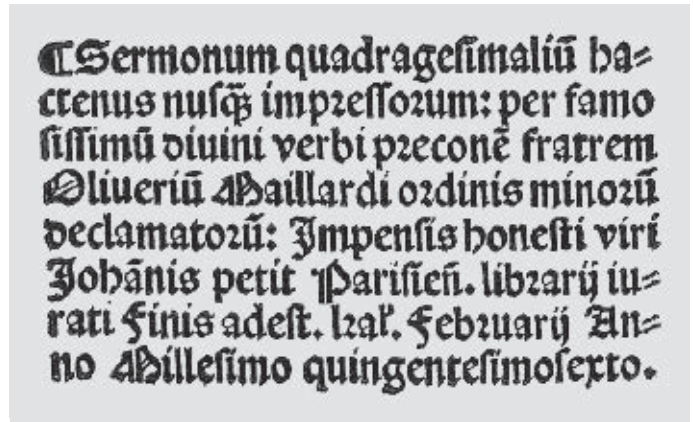 ¶Sermonum quadrageſimaliū ha⸗
ctenus nuſq̃ꝫ impꝛeſſoꝛum: per famo
ſiſſimū diuini verbi pꝛeconē fratrem
Oliueriū Maillardi oꝛdinis minoꝛū
declamatoꝛū: Impenſis honeſti viri
Johānis petit Pariſieñ. libꝛarij iu⸗
rati Finis adeſt. Febꝛuarij An⸗
no Milleſimo quingenteſimoſexto.